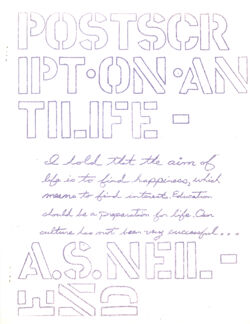 POSTSCR
IPT·ON·AN
TILIFE -
I hold tht the aim of
life is to find happiness, which
means to find interest. Education
should be a preparation for life. Our
culture has not been very successful...
A.S. NEIL -
END